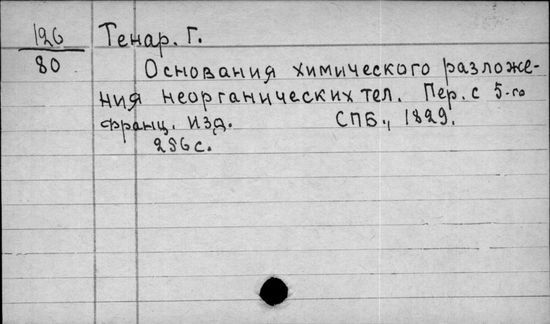 126
80
Тенар. Г.
Основания химического разложе-
ния неорганических тел. Пер. с 5-го
франц. изд. СПБ., 1829.
256 с.